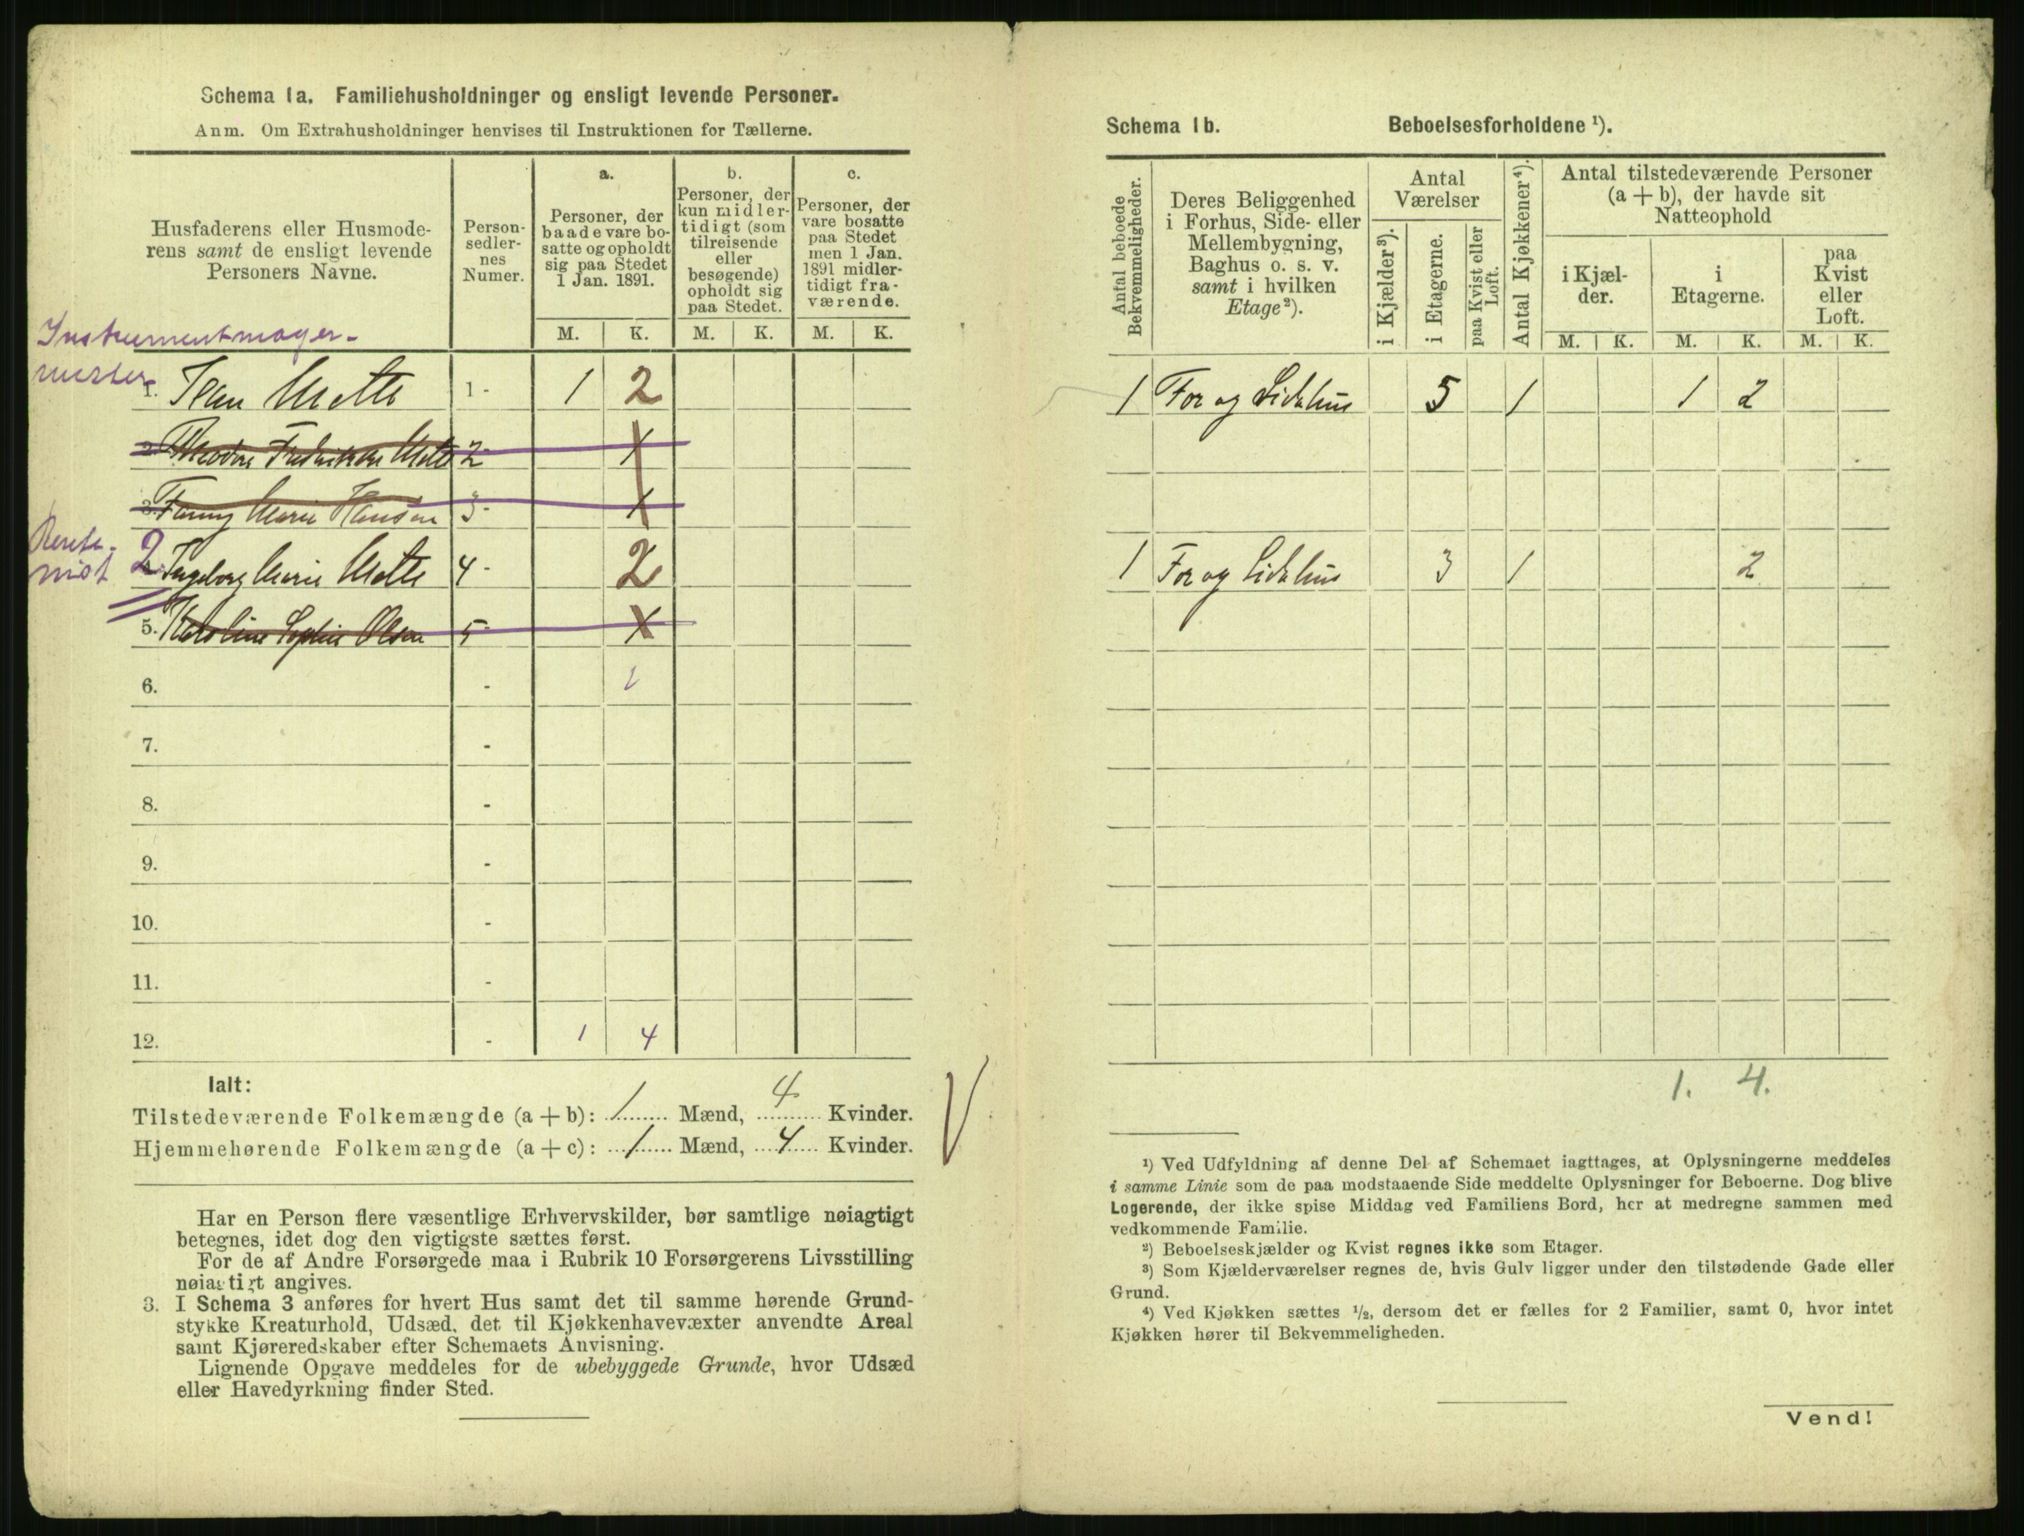 Schema 1a. Familiehusholdninger og ensligt levende Personer.
Anm. Om Extrahusholdninger henvises til Instruktionen for Tællerne.
Husfaderens eller Husmode-
rens samt de ensligt levende
Personers Navne.
Person-
sedler-
nes
Numer.
a.
Personer, der
baade vare bo-
satte og opholdt
sig paa Stedet
1 Jan. 1891.
b.
Personer, der
kun midler-
tidigt (som
tilreisende
eller
besøgende)
opholdt sig
paa Stedet.
c.
Personer, der
vare bosatte
paa Stedet
men 1 Jan.
1891 midler-
tidigt fra-
værende.
M. K. M. K. M. K.
Instrumentmager-
mester
1. Mette 1 - 1 2
2. Fredrikke Mette 2 - 1
3. Fanny Marie Hansen 3 - 1
Rente-
nist
2 Ingeborg Marie Mette 4 - 2
5. Karoline Sophie Olsen 5 - 1
6. -
7. -
8. -
9. -
10. -
11. -
12. - 1 4
Ialt:
Tilstedeværende Folkemængde (a + b): 1 Mænd, 4 Kvinder.
Hjemmehørende Folkemængde (a + c): 1 Mænd, 4 Kvinder.
Har en Person flere væsentlige Erhvervskilder, bør samtlige nøiagtigt
betegnes, idet dog den vigtigste sættes først.
For de af Andre Forsørgede maa i Rubrik 10 Forsørgerens Livsstilling
nøiagtigt angives.
3. I Schema 3 anføres for hvert Hus samt det til samme hørende Grund-
stykke Kreaturhold, Udsæd, det til Kjøkkenhavevæxter anvendte Areal
samt Kjøreredskaber efter Schemaets Anvisning.
Lignende Opgave meddeles for de ubebyggede Grunde, hvor Udsæd
eller Havedyrkning finder Sted.
Schema 1b. Beboelsesforholdene ¹).
Antal beboede
Bekvemmeligheder.
Deres Beliggenhed
i Forhus, Side- eller
Mellembygning,
Baghus o. s. v.
samt i hvilken
Etage²).
Antal
Værelser
i Kjælder³).
i Etagerne.
paa Kvist eller
Loft.
Antal Kjøkkener⁴).
Antal tilstedeværende Personer
(a + b), der havde sit
Natteophold
i Kjæl-
der.
i
Etagerne.
paa
Kvist
eller
Loft.
M. K. M. K. M. K.
1 For og Sidehus 5 1 1 2
1 For og Sidehus 3 1 2
1. 4.
¹) Ved Udfyldning af denne Del af Schemaet iagttages, at Oplysningerne meddeles
i samme Linie som de paa modstaaende Side meddelte Oplysninger for Beboerne. Dog blive
Logerende, der ikke spise Middag ved Familiens Bord, her at medregne sammen med
vedkommende Familie.
²) Beboelseskjælder og Kvist regnes ikke som Etager.
³) Som Kjælderværelser regnes de, hvis Gulv ligger under den tilstødende Gade eller
Grund.
⁴) Ved Kjøkken sættes ½, dersom det er fælles for 2 Familier, samt 0, hvor intet
Kjøkken hører til Bekvemmeligheden.
Vend!